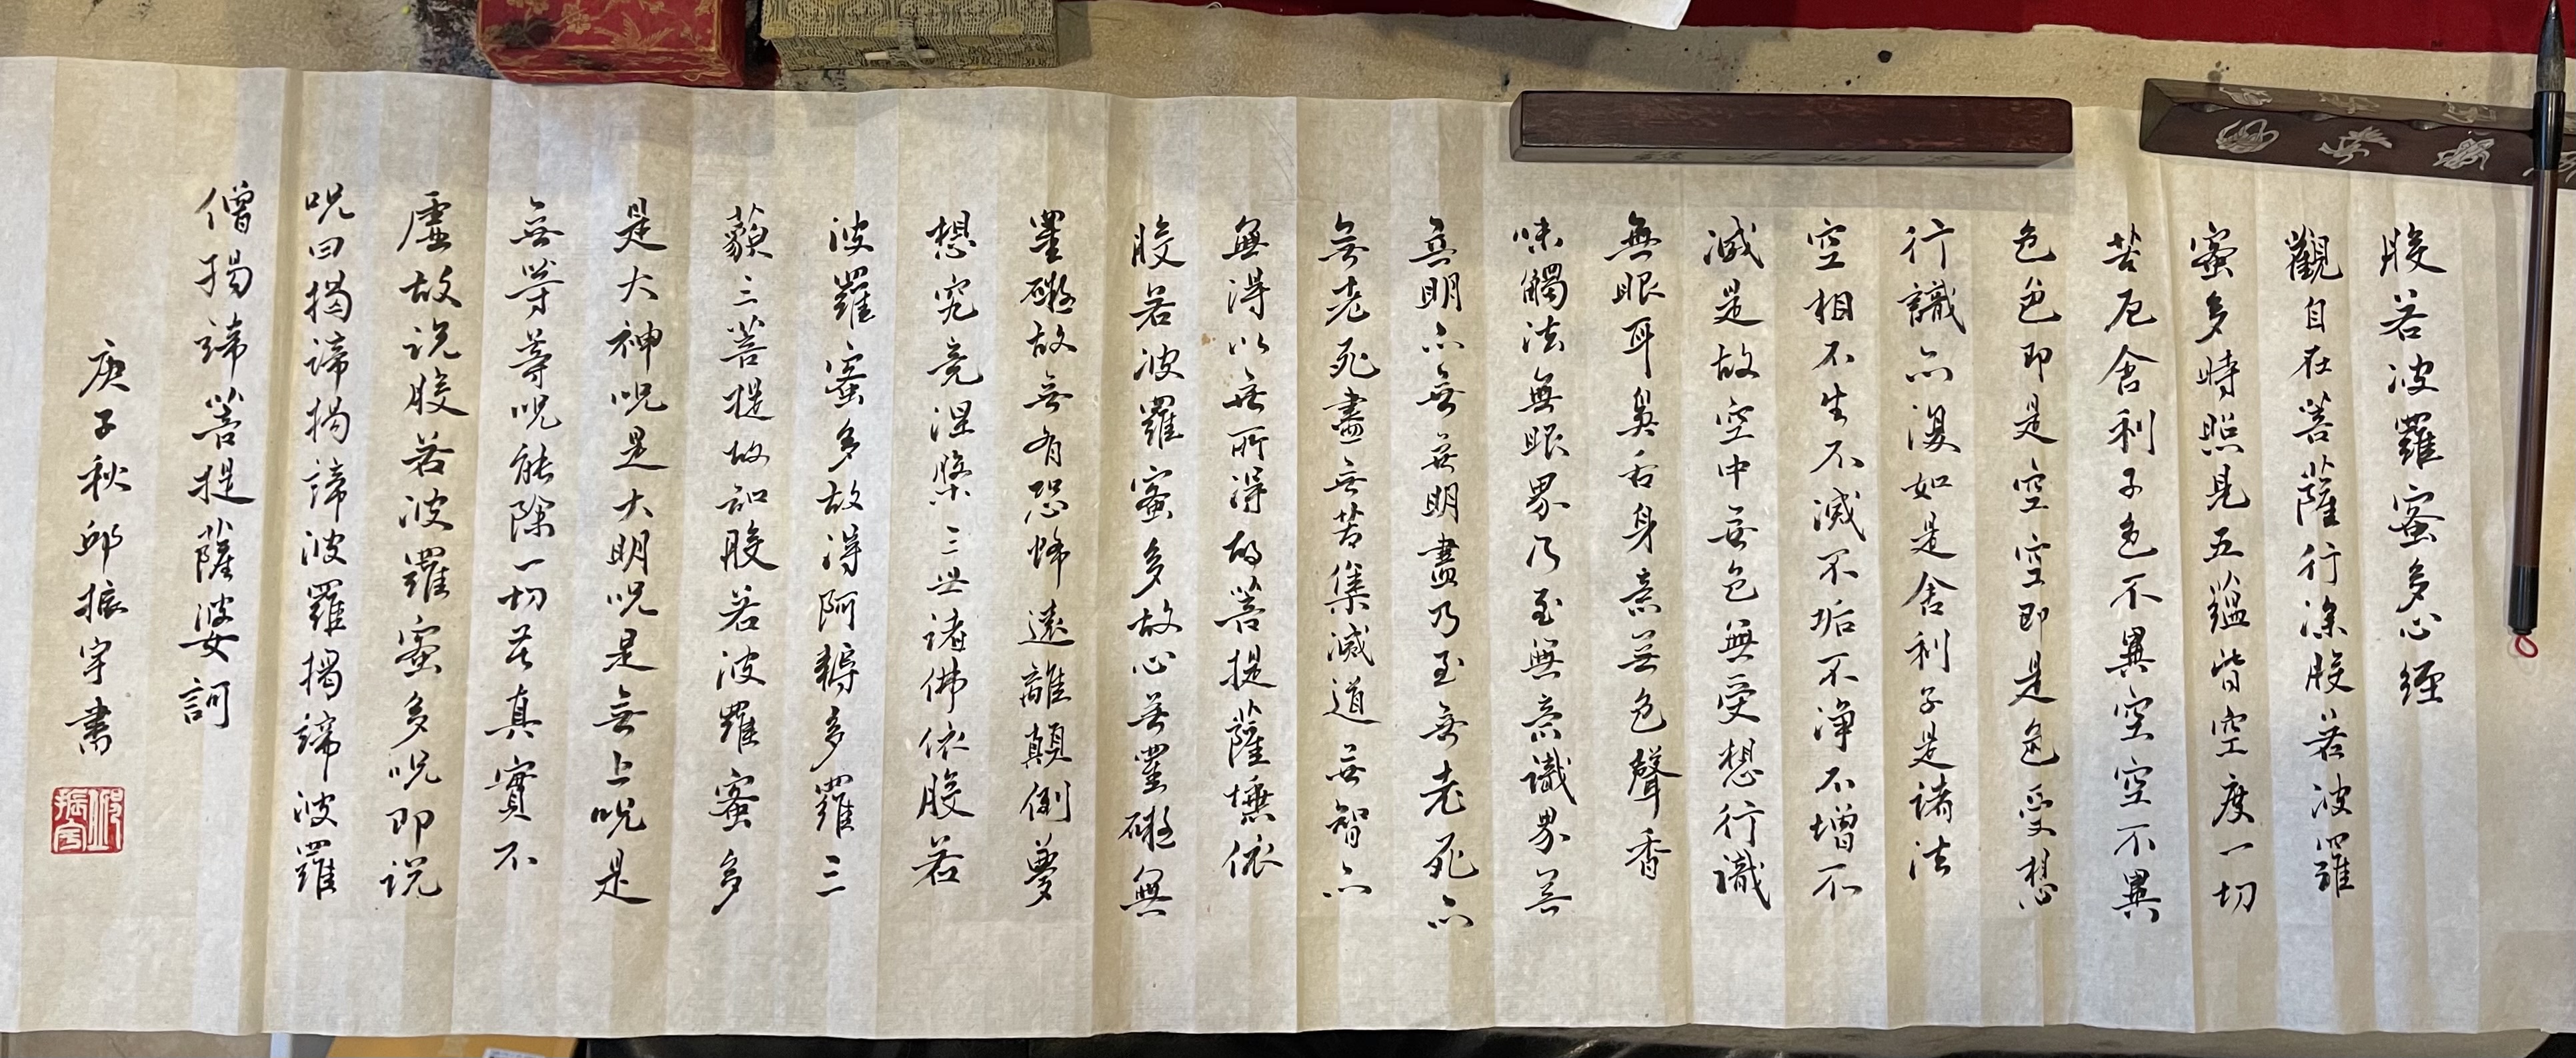 般若波羅蜜多心經
觀自在菩薩行深般若波羅
蜜多時照見五蘊皆空度一切
苦厄舍利子色不異空空不異
色色即是空空即是色受想
行識亦復如是舍利子是諸法
空相不生不滅不垢不淨不增不
減是故空中無色無受想行識
無眼耳鼻舌身意無色聲香
味觸法無眼界乃至無意識界無
無明亦無無明盡乃至無老死亦
無老死盡無苦集滅道無智亦
無得以無所得故菩提薩埵依
般若波羅蜜多故心無罣礙無
罣礙故無有恐怖遠離顛倒夢
想究竟涅槃三世諸佛依般若
波羅蜜多故得阿耨多羅三
藐三菩提故知般若波羅蜜多
是大神呪是大明呪是無上呪是
無等等呪能除一切苦真實不
虛故說般若波羅蜜多呪即說
呪曰揭諦揭諦波羅揭諦波羅
僧揭諦菩提薩婆訶
庚子秋邱振宇書
邱振宇